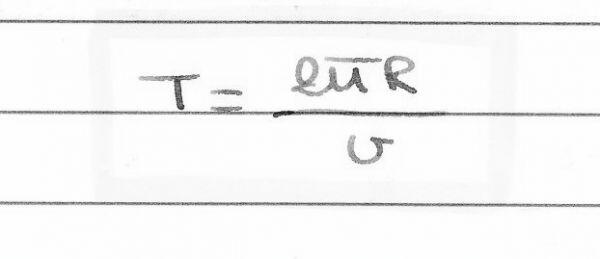 T = 2πR / υ